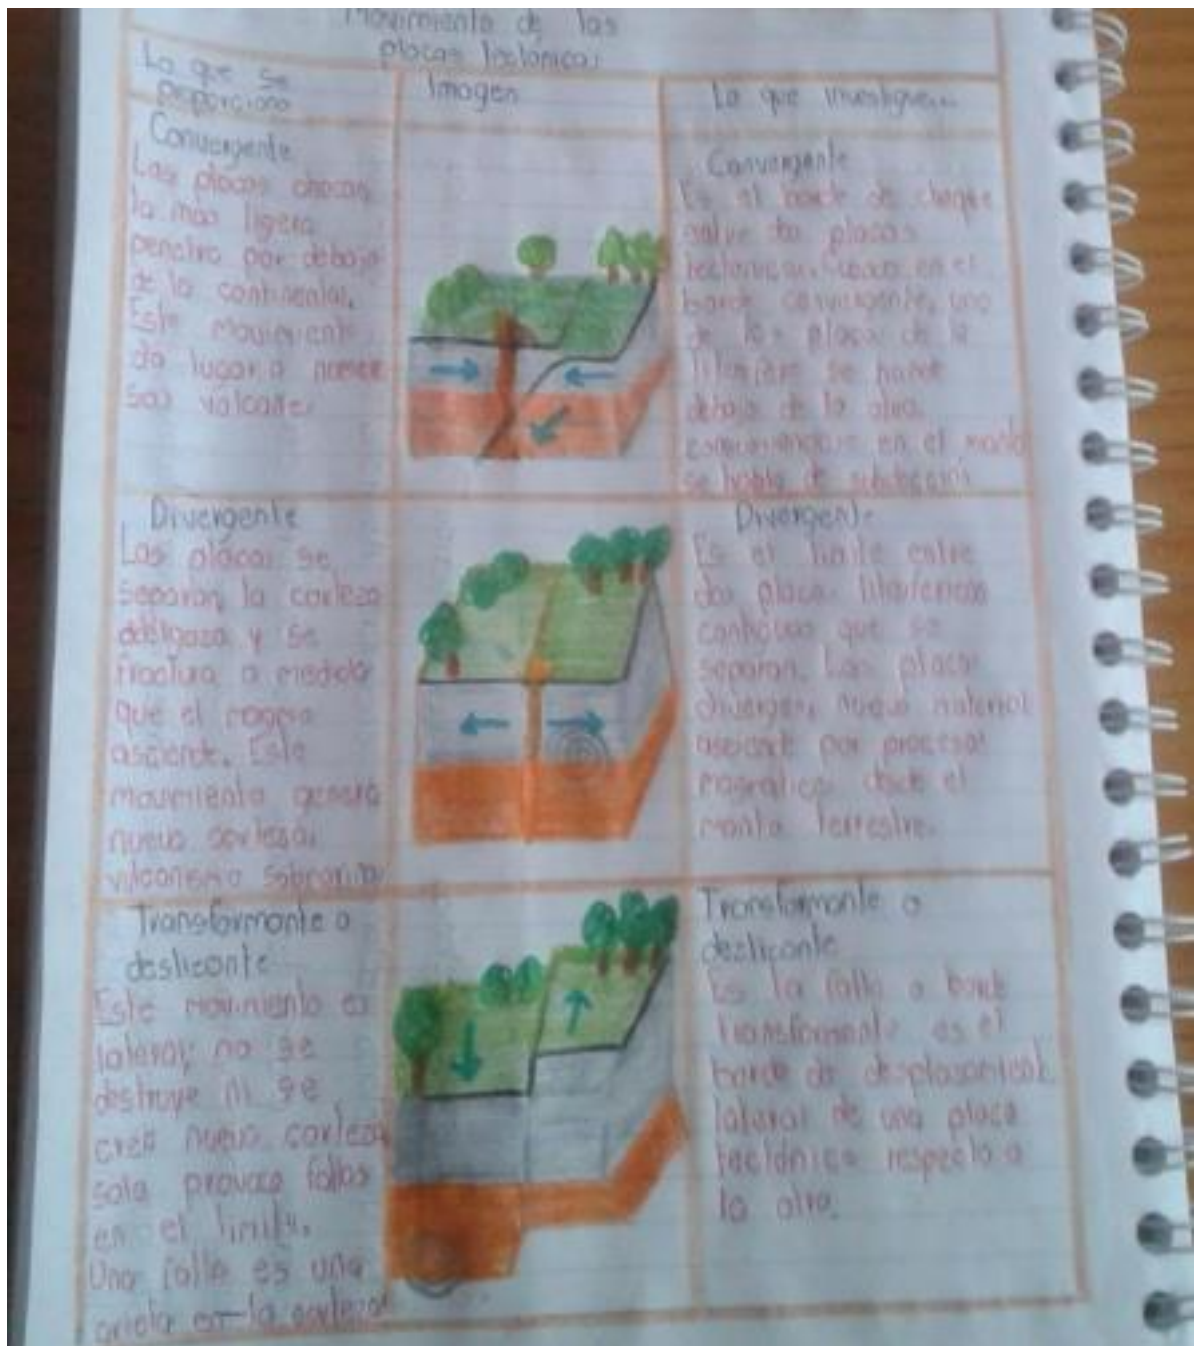 Movimiento de las
placas tectonicas
Lo que se
proporciono
Imagen
Lo que investigue...
Convergente
Las placas chocan,
la mas ligera
penetra por debajo
de la continental.
Este movimiento
da lugar a numero
sos volcane.
Convergente
Es el borde de choque
entre dos placas
en el
borde convergente, una
de las placas de la
litosfera se hunde
debajo de la otra.
en el manto
se habla de subducción
Divergente
Las placas se
separan, la corteza
adelgaza y se
fractura a medida
que el magma
asciende. Este
movimiento genera
nueva corteza,
vulcanismo submarino
Divergente
Es el limite entre
dos placas litosfericas
contiguas que se
separan. Las placas
divergen, nuevo material
asciende por procesos
magmaticos desde el
manto terrestre.
Transformante o
deslizante
Este movimiento es
lateral; no se
destruye ni se
crea nueva corteza
solo provoca fallas
en el limite.
Una falla es una
grieta en la corteza
Transformante o
deslizante
Es la falla o borde
transformante es el
borde de desplazamiento
lateral de una placa
tectónica respecto a
la otra.